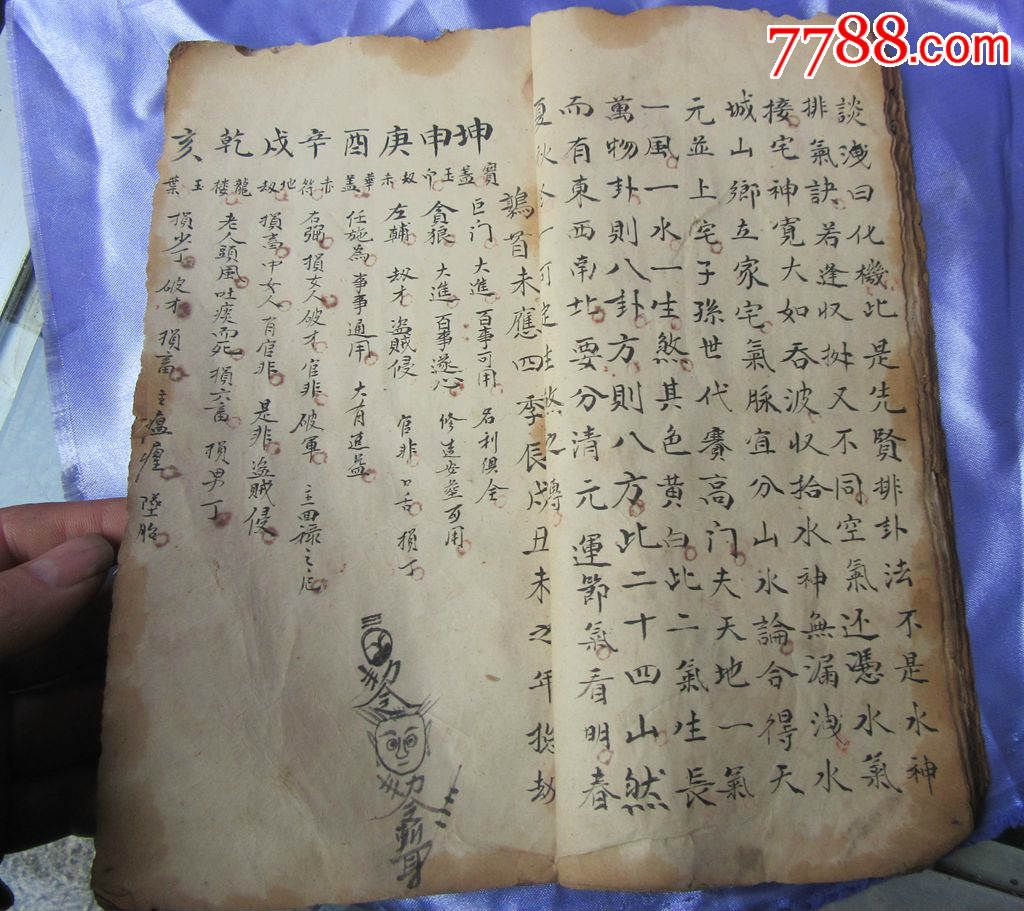 7788.com
談洩曰化機此是先賢排卦法不是水神
排氣訣若逢收又不同空氣还憑水氣
接宅神寛大如吞波收拾水神無漏洩水
城山鄉立家宅氣脉宜分山水論合得天
元並上宅子孫世代賽高门夫天地一氣
一風一水一生煞其色黄白比二氣生長
萬物卦則八卦方則八方比二十四山然
而有東西南北要分清元運節氣看明春
夏秋冬一可定生煞之
首未應四季辰戌丑未之年捴劫
坤 寳盖 巨门 大進 百事可用 名利俱全
申 玉 貪狼 大進 百事遂心 修造安塟可用
庚 劫 左輔 劫才 盗賊侵 官非 口舌 損丁
酉 華盖 任施為 事事通用 大有進益
辛 赤符 右弼 損女人破才 官非 破軍 主回祿之
戍 地劫 損畜中女人有官非 是非 盗賊侵
乾 龍楼 老人頭風吐痰而死 損六畜 損男丁
亥 玉葉 損少丁 破才 損畜 主瘟 墜胎